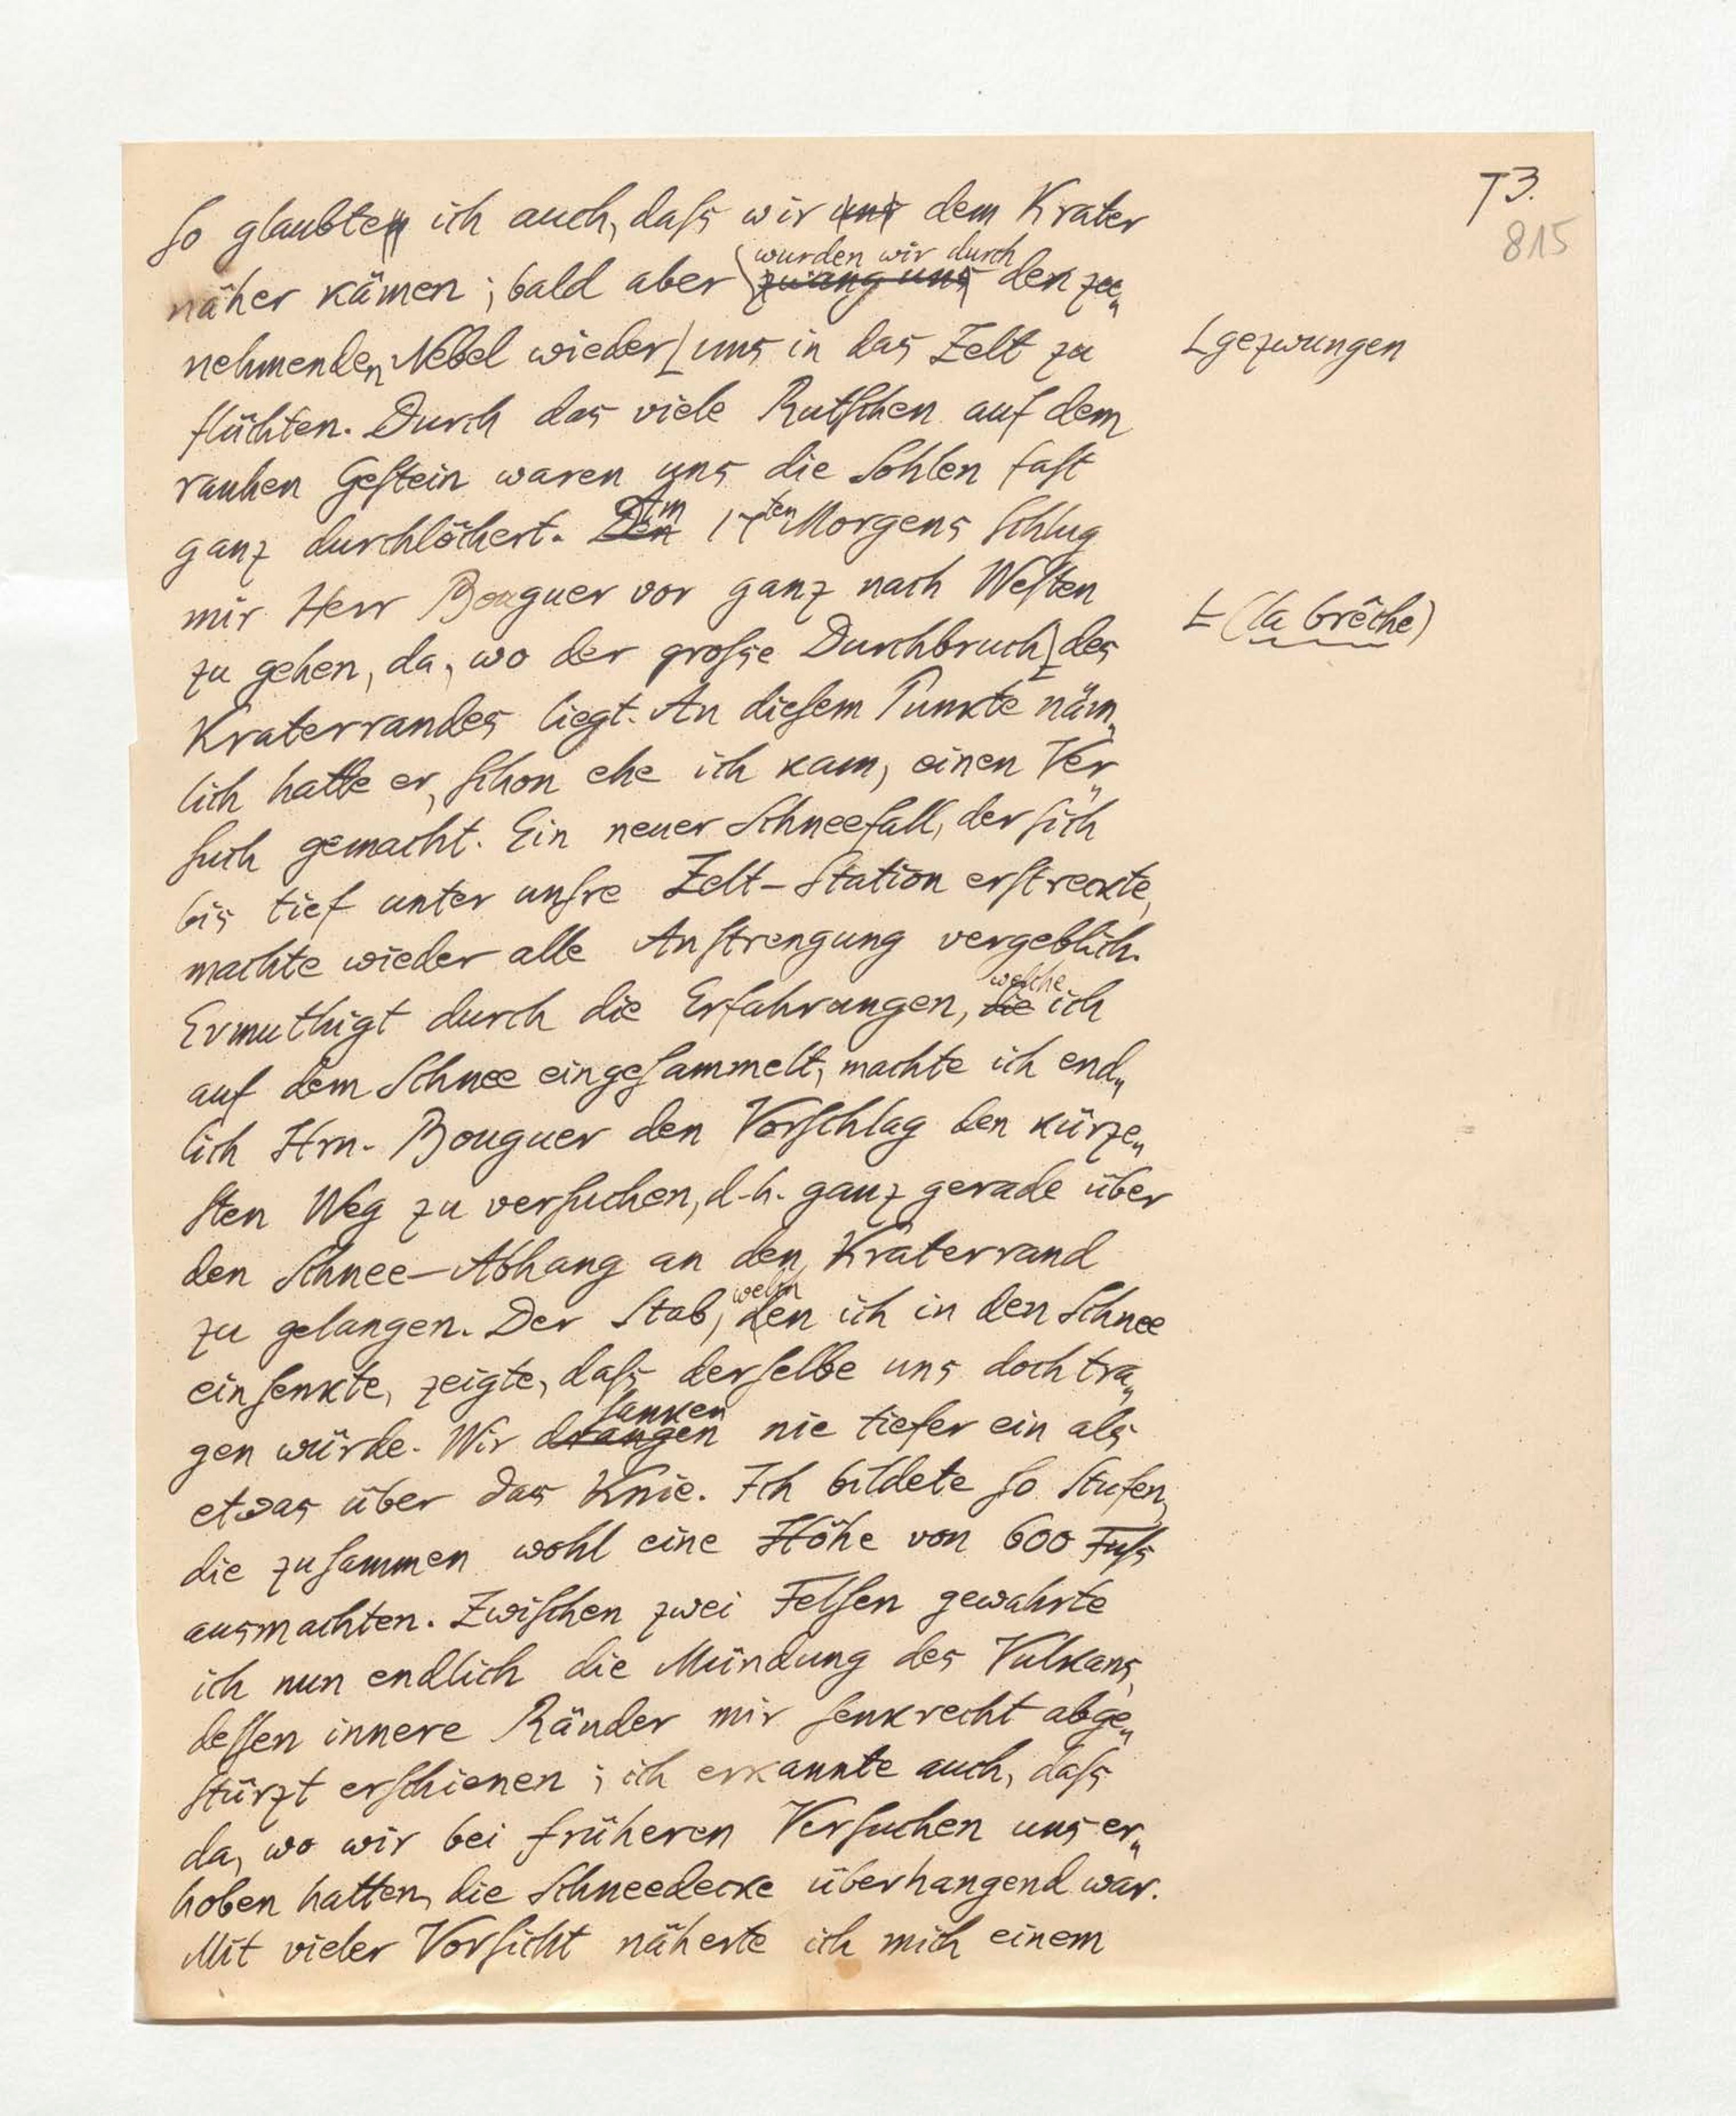 T3.
815
so glaubten ich auch, dass wir uns dem Krater
wurden wir durch
näher kämen; bald aber zwang uns den zu„
nehmenden Nebel wieder⌊ uns in das Zelt zu
⌊gezwungen
flüchten. Durch das viele Rutschen auf dem
rauhen Gestein waren uns die Sohlen fast
Am
ganz durchlöchert. Den 17ten Morgens schlug
mir Herr Bouguer vor ganz nach Westen
⌊(la brêche)
zu gehen, da, wo der grosse Durchbruch⌊ des
Kraterrandes liegt. An diesem Punkte näm„
lich hatte er, schon ehe ich kam, einen Ver„
such gemacht. Ein neuer Schneefall, der sich
bis tief unter unsre Zelt-Station erstreckte,
machte wieder alle Anstrengung vergeblich.
welche
Ermuthigt durch die Erfahrungen, die ich
auf dem Schnee eingesammelt, machte ich end„
lich Hrn. Bouguer den Vorschlag den kürze„
sten Weg zu versuchen, d.h. ganz gerade über
den Schnee-Abhang an den Kraterrand
zu gelangen. Der Stab, den ich in den Schnee
einsenkte, zeigte, dass derselbe uns doch tra„
sanken
gen würde. Wir drangen nie tiefer ein als
etwas über das Knie. Ich bildete so Stufen,
die zusammen wohl eine Höhe von 600 Fuss
ausmachten. Zwischen zwei Felsen gewahrte
ich nun endlich die Mündung des Vulkans,
dessen innere Ränder mir senkrecht abge„
stürzt erschienen; ich erkannte auch, dass
da, wo wir bei früheren Versuchen uns er„
hoben hatten, die Schneedecke überhangend war.
Mit vieler Vorsicht näherte ich mich einem